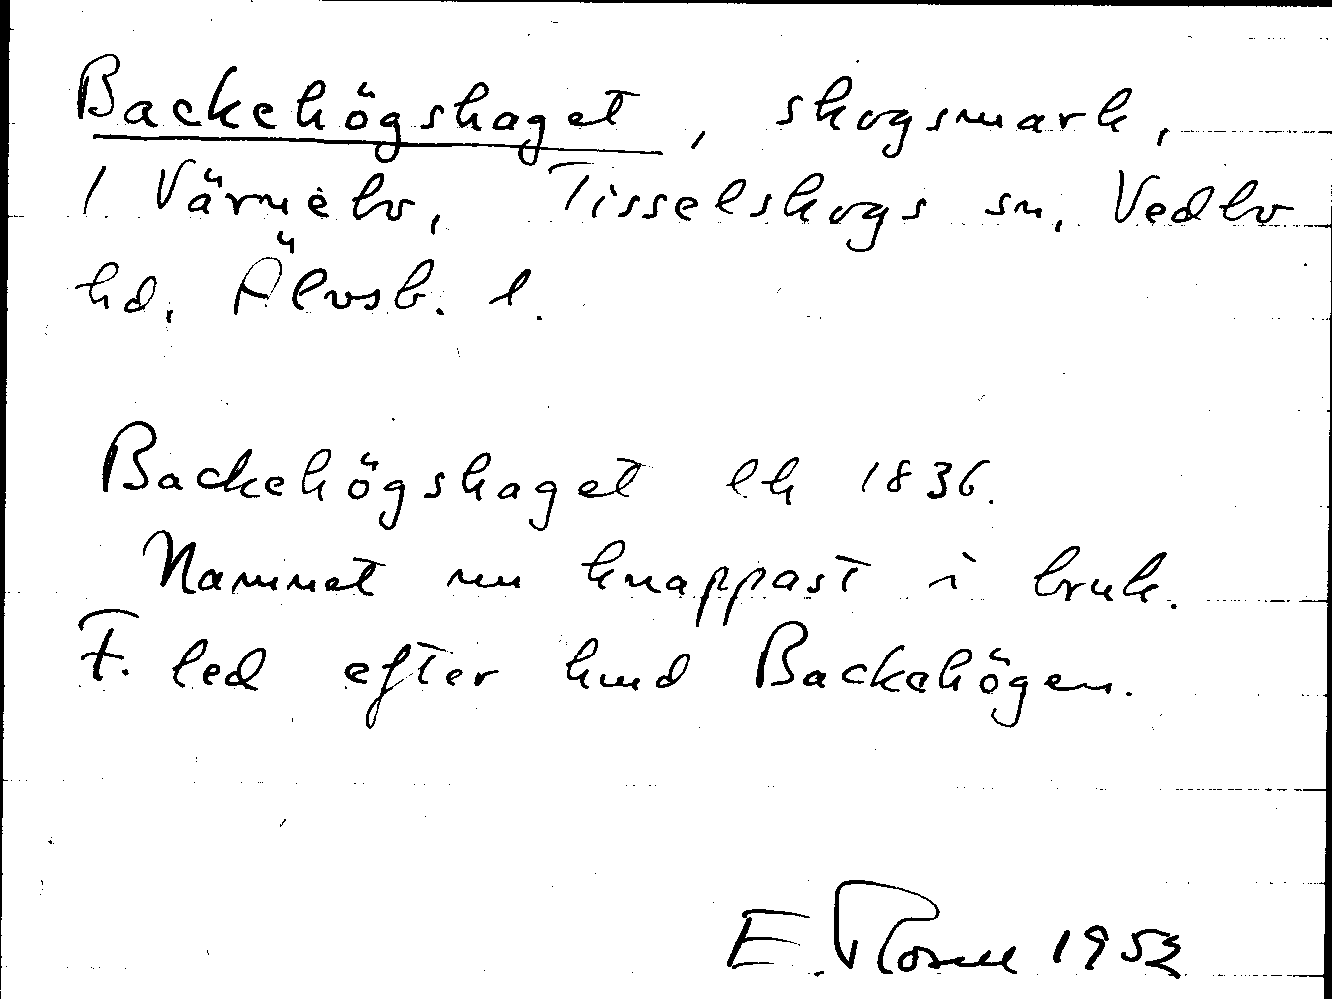 Backehögshaget, skogsmark,
1 Värnebo, Tisselskogs sn, Vedbo
hd, Älvsb. l.
Backehögshaget lk 1836.
Namnet nu knappast i bruk.
F. led efter hmd Backehögen.
E.